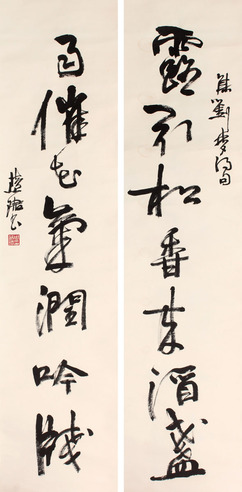 集劉夢得句
露引松香来酒盞
雨催花氣潤吟牋